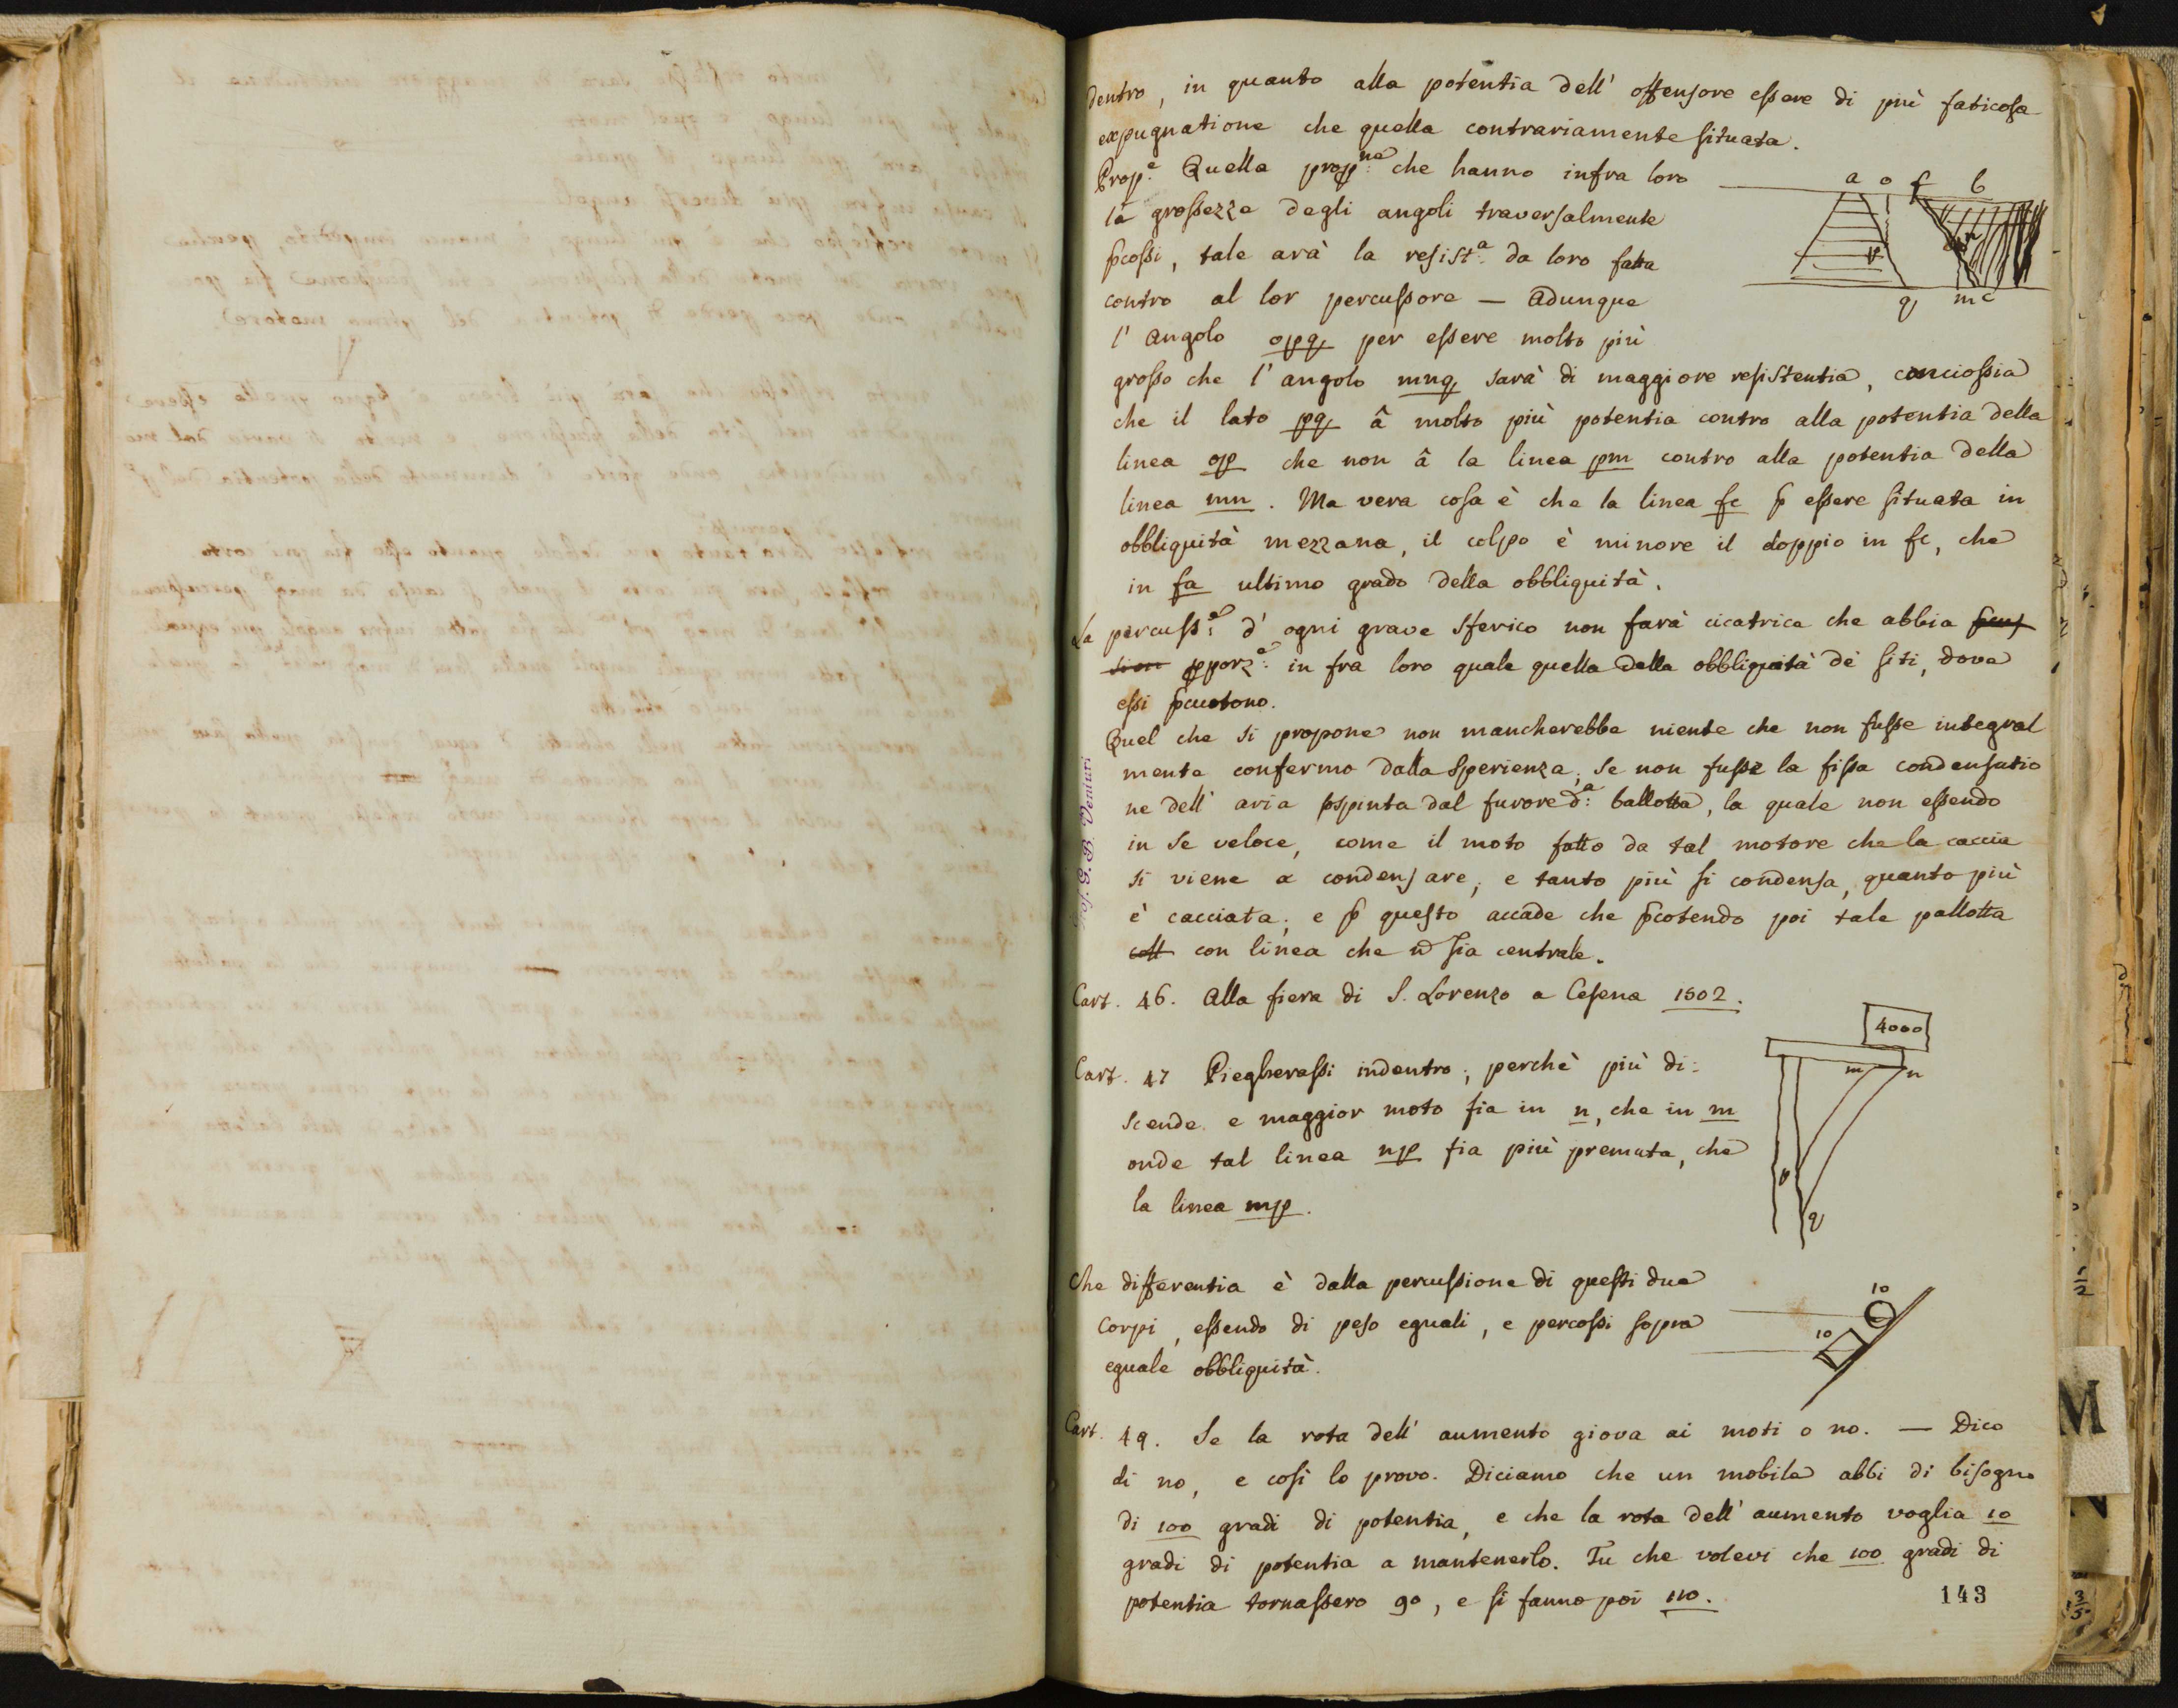 dentro, in quanto alla potentia dell' offensore essere di più faticosa
expugnatione che quella contrariamente situata.
Prop.e Quella propna che hanno infra loro
la grossezza degli angoli traversalmente
p̄cossi, tale arà la resist.a da loro fatta
contro al lor percussore — Adunque
l' angolo opq per essere molto più
grosso che l' angolo mnq sarà di maggiore resistentia, conciossia
che il lato pq â molto più potentia contro alla potentia della
linea op che non â la linea pm contro alla potentia della
linea mn. Ma vera cosa è che la linea fc p̄ essere situata in
obbliquità mezzana, il colpo è minore il doppio in fc, che
in fa ultimo grado della obbliquità.
a o f b
p n
q m c
La percuss.e d' ogni grave sferico non farà cicatrice che abbia
pporz.e in fra loro quale quella della obbliquità de' siti, dove
essi p̄cuotono.
Quel che si propone non mancherebbe niente che non fusse integral
mente confermo dalla sperienza, se non fusse la fissa condensatio
ne dell' aria sospinta dal furore d.a ballotta, la quale non essendo
in se veloce, come il moto fatto da tal motore che la caccia
si viene a condensare, e tanto più si condensa, quanto più
è cacciata; e p̄ questo accade che p̄cotendo poi tale pallotta
cott con linea che n̄ sia centrale.
Prof. G. B. Venturi
Cart. 46. Alla fiera di S. Lorenzo a Cesena 1502.
Cart. 47 Piegherassi indentro, perchè più di:
scende e maggior moto fia in n, che in m
onde tal linea np fia più premuta, che
la linea mp.
4000
m n
p
q
Che differentia è dalla percussione di questi due
corpi, essendo di peso eguali, e percossi sopra
eguale obbliquità.
10
10
Cart. 49. Se la rota dell' aumento giova ai moti o no. — Dico
di no, e così lo provo. Diciamo che un mobile abbi di bisogno
di 100 gradi di potentia, e che la rota dell' aumento voglia 10
gradi di potentia a mantenerlo. Tu che volevi che 100 gradi di
potentia tornassero 90, e si fanno poi 110.
143
M